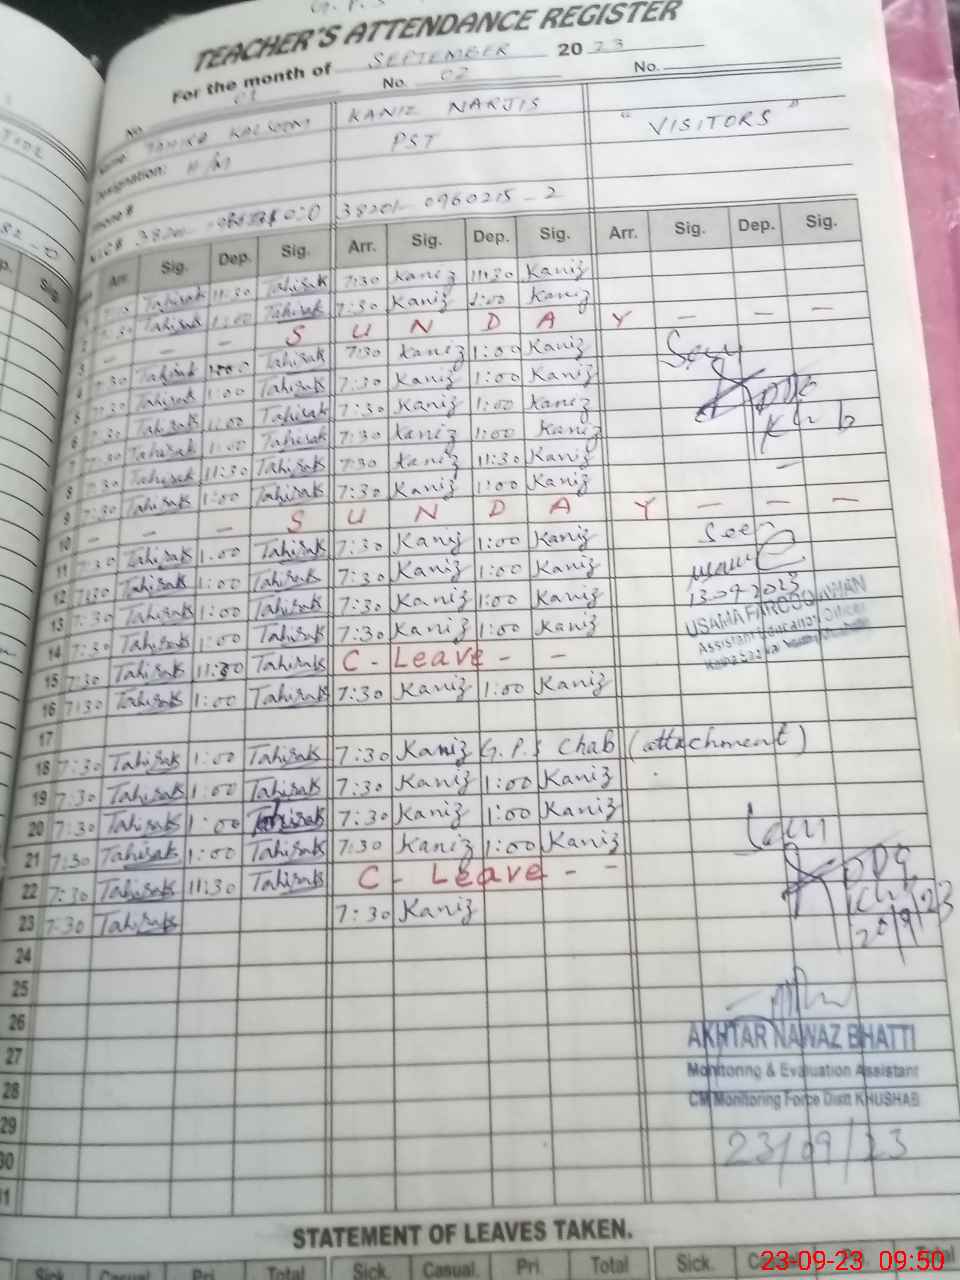 G.P.S
TEACHER'S ATTENDANCE REGISTER
For the month of SEPTEMBER 2023
No. 01 No. 02 No.
Name: TAHIRA KALSOOM KANIZ NARJIS "VISITORS"
Designation: H/M PST
38201- 38201-0960215-2
Arr. Sig. Dep. Sig. Arr. Sig. Dep. Sig. Arr. Sig. Dep. Sig.
1 7:30 Tahirak 11:30 Tahirak 7:30 Kaniz 11:30 Kaniz
2 7:30 Tahirak 1:00 Tahirak 7:30 Kaniz 1:00 Kaniz
3 - - - S U N D A Y - - -
4 7:30 Tahirak 1:00 Tahirak 7:30 Kaniz 1:00 Kaniz Seen
5 7:30 Tahirak 1:00 Tahirak 7:30 Kaniz 1:00 Kaniz
6 7:30 Tahirak 1:00 Tahirak 7:30 Kaniz 1:00 Kaniz
7 7:30 Tahirak 1:00 Tahirak 7:30 Kaniz 1:00 Kaniz
8 7:30 Tahirak 11:30 Tahirak 7:30 Kaniz 11:30 Kaniz
9 7:30 Tahirak 1:00 Tahirak 7:30 Kaniz 1:00 Kaniz
10 - - - S U N D A Y - - -
11 7:30 Tahirak 1:00 Tahirak 7:30 Kaniz 1:00 Kaniz Seen
12 7:30 Tahirak 1:00 Tahirak 7:30 Kaniz 1:00 Kaniz
13 7:30 Tahirak 1:00 Tahirak 7:30 Kaniz 1:00 Kaniz 13.09.2023
14 7:30 Tahirak 1:00 Tahirak 7:30 Kaniz 1:00 Kaniz USAMA FAROOQ AWAN
15 7:30 Tahirak 11:30 Tahirak C - Leave - - Assistant Education Officer
16 7:30 Tahirak 1:00 Tahirak 7:30 Kaniz 1:00 Kaniz
17
18 7:30 Tahirak 1:00 Tahirak 7:30 Kaniz G.P.S Chab (attachment)
19 7:30 Tahirak 1:00 Tahirak 7:30 Kaniz 1:00 Kaniz
20 7:30 Tahirak 1:00 Tahirak 7:30 Kaniz 1:00 Kaniz
21 7:30 Tahirak 1:00 Tahirak 7:30 Kaniz 1:00 Kaniz Seen
22 7:30 Tahirak 11:30 Tahirak C - Leave - -
23 7:30 Tahirak 7:30 Kaniz 20/9/23
24
25
26
AKHTAR NAWAZ BHATTI
27
Monitoring & Evaluation Assistant
28
CM Monitoring Force Distt KHUSHAB
29
23/09/23
30
31
STATEMENT OF LEAVES TAKEN.
Sick. Casual. Pri. Total Sick. Casual. Pri. Total Sick. Total
23-09-23 09:50